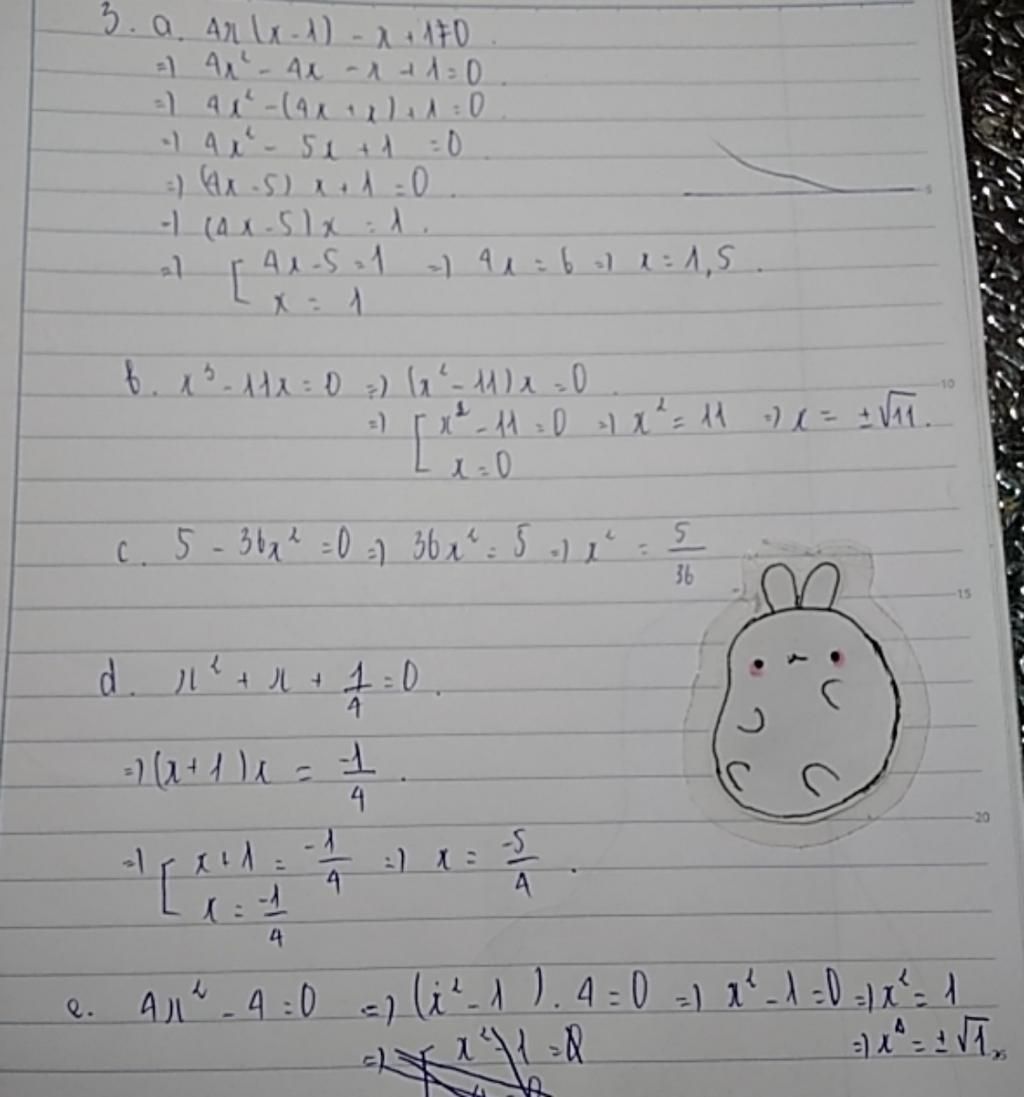 3. a. 4x(x-1) - x + 1 = 0.
=) 4x² - 4x - x + 1 = 0.
=) 4x² - (4x + x) + 1 = 0
=) 4x² - 5x + 1 = 0
=) (4x - 5) x + 1 = 0.
5
=) (4x - 5) x = 1.
=) [ 4x - 5 = 1 =) 4x = 6 =) x = 1,5.
x = 1
b. x³ - 11x = 0 =) (x² - 11) x = 0.
10
=) [ x² - 11 = 0 =) x² = 11 =) x = ±√11.
x = 0
c. 5 - 36x² = 0 =) 36x² = 5 =) x² = 5/36
15
d. x² + x + 1/4 = 0.
=) (x + 1) x = -1/4.
20
=) [ x + 1 = -1/4 =) x = -5/4.
x = -1/4
e. 4x² - 4 = 0 =) (x² - 1). 4 = 0 =) x² - 1 = 0 =) x² = 1
=) [ x² - 1 = 0 =) x = ±√1